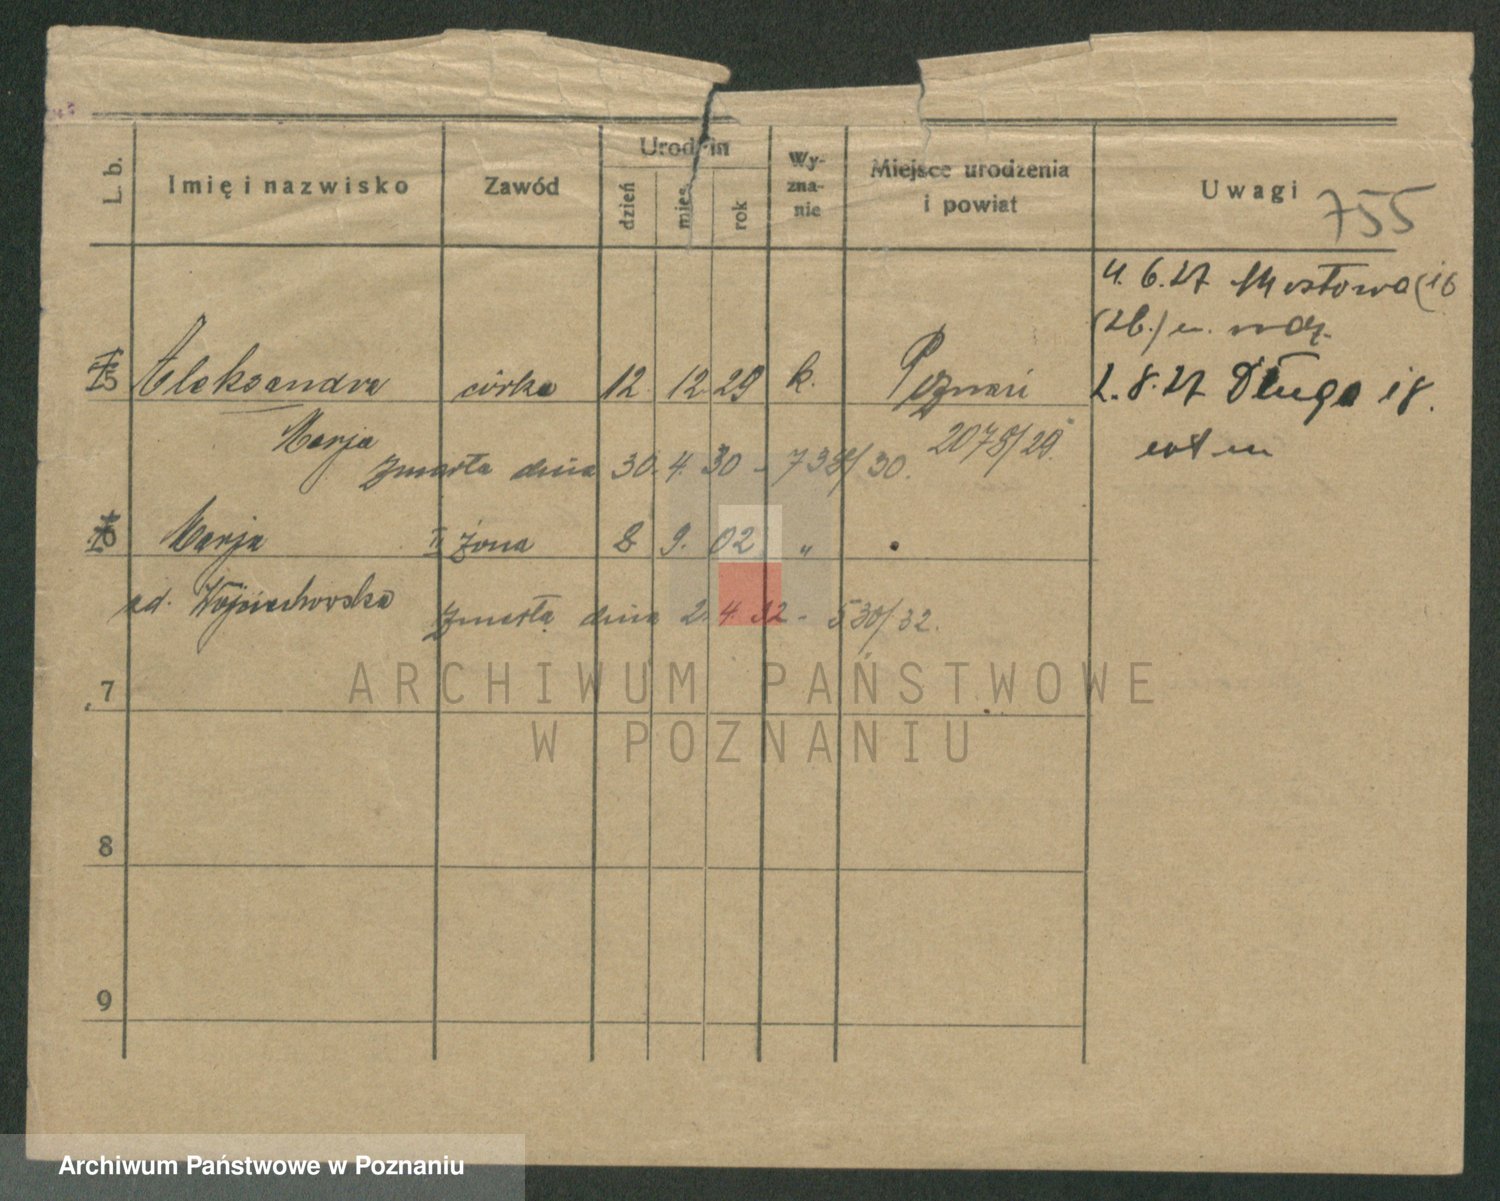 L. b. Imię i nazwisko Zawód Urodzin Wy-zna-nie Miejsce urodzenia i powiat Uwagi 755
dzień mies. rok
4. 6. 27 Mostowa (16
(26.) u. rodz.
5 Aleksandra córka 12. 12 29 k. Poznań 2. 8. 27 Długa 18.
Marja 2075/29.
zmarła dnia 30. 4. 30 - 738/30.
6 Marja II żona 8 9. 02 „
zd. Wojciechowska zmarła dnia 2. 4. 32 - 530/32.
7
ARCHIWUM PAŃSTWOWE
W POZNANIU
8
9
Archiwum Państwowe w Poznaniu